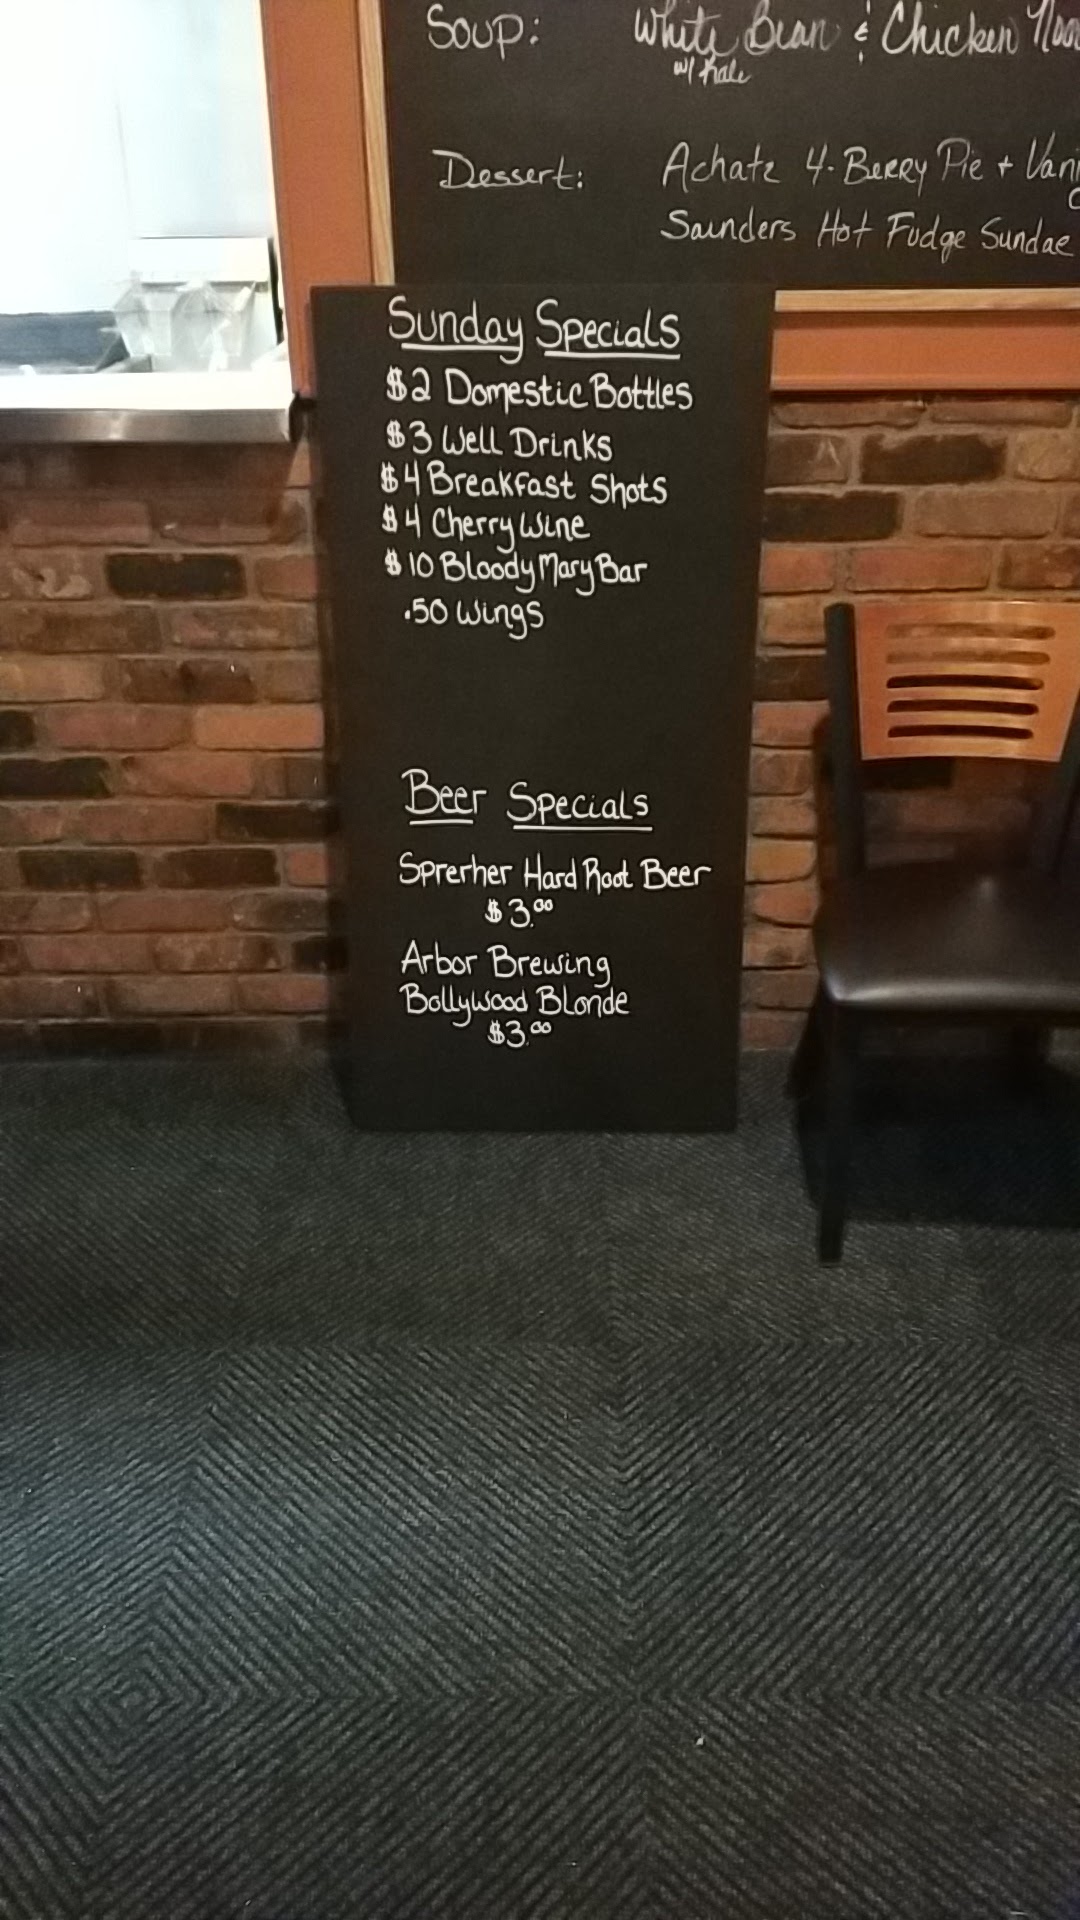 Soup: White Bean & Chicken
w/ Kale
Dessert: Achatz 4-Berry Pie +
Saunders Hot Fudge Sundae
Sunday Specials
$2 Domestic Bottles
$3 Well Drinks
$4 Breakfast Shots
$4 Cherry Wine
$10 Bloody Mary Bar
.50 Wings
Beer Specials
Sprerher Hard Root Beer
$3.00
Arbor Brewing
Bollywood Blonde
$3.00